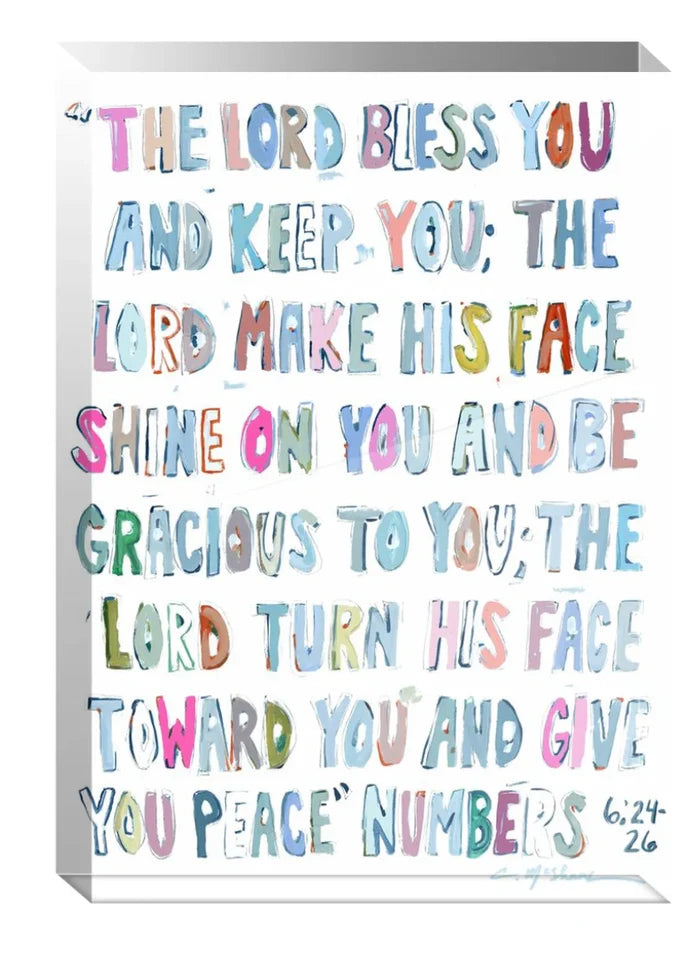 "THE LORD BLESS YOU
AND KEEP YOU; THE
LORD MAKE HIS FACE
SHINE ON YOU AND BE
GRACIOUS TO YOU; THE
LORD TURN HIS FACE
TOWARD YOU AND GIVE
YOU PEACE" NUMBERS 6:24-
26